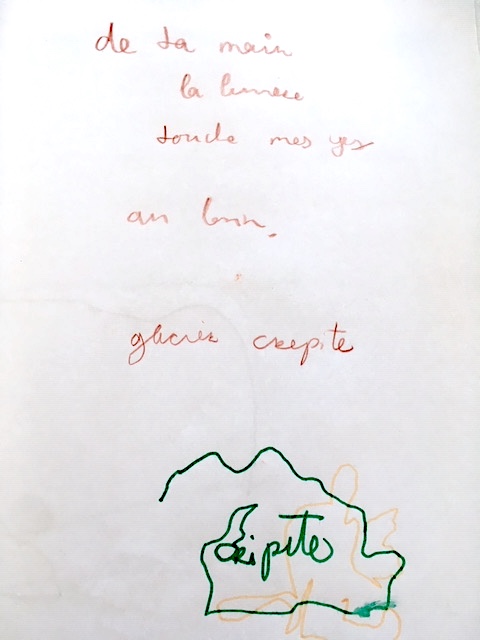 de ta main
la lumière
touche mes yes
au loin.
glacier crepite
crepite